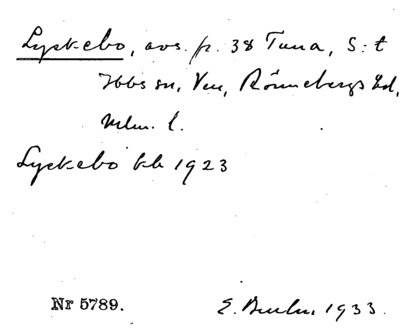 Lyckebo, avs. fr. 38 Tuna, S:t
Ibbs sn, Ven, Rönnebergs hd,
Mlm. l.
Lyckebo kb 1923
Nr 5789.
E. 1933.